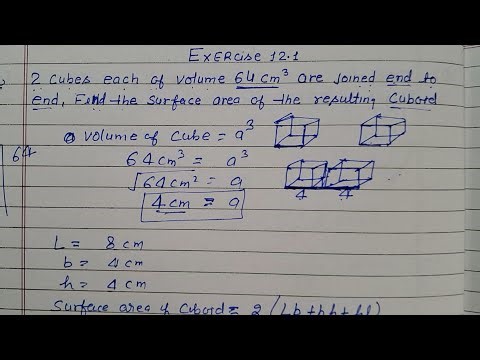 Exercise 12.1
2 cubes each of volume 64 cm³ are joined end to
end, Find the surface area of the resulting Cuboid
volume of cube = a³
64
64 cm³ = a³
√64 cm² = a
4 cm = a
4 4
L = 8 cm
b = 4 cm
h = 4 cm
Surface area of Cuboid = 2 (Lb + bh + hl)